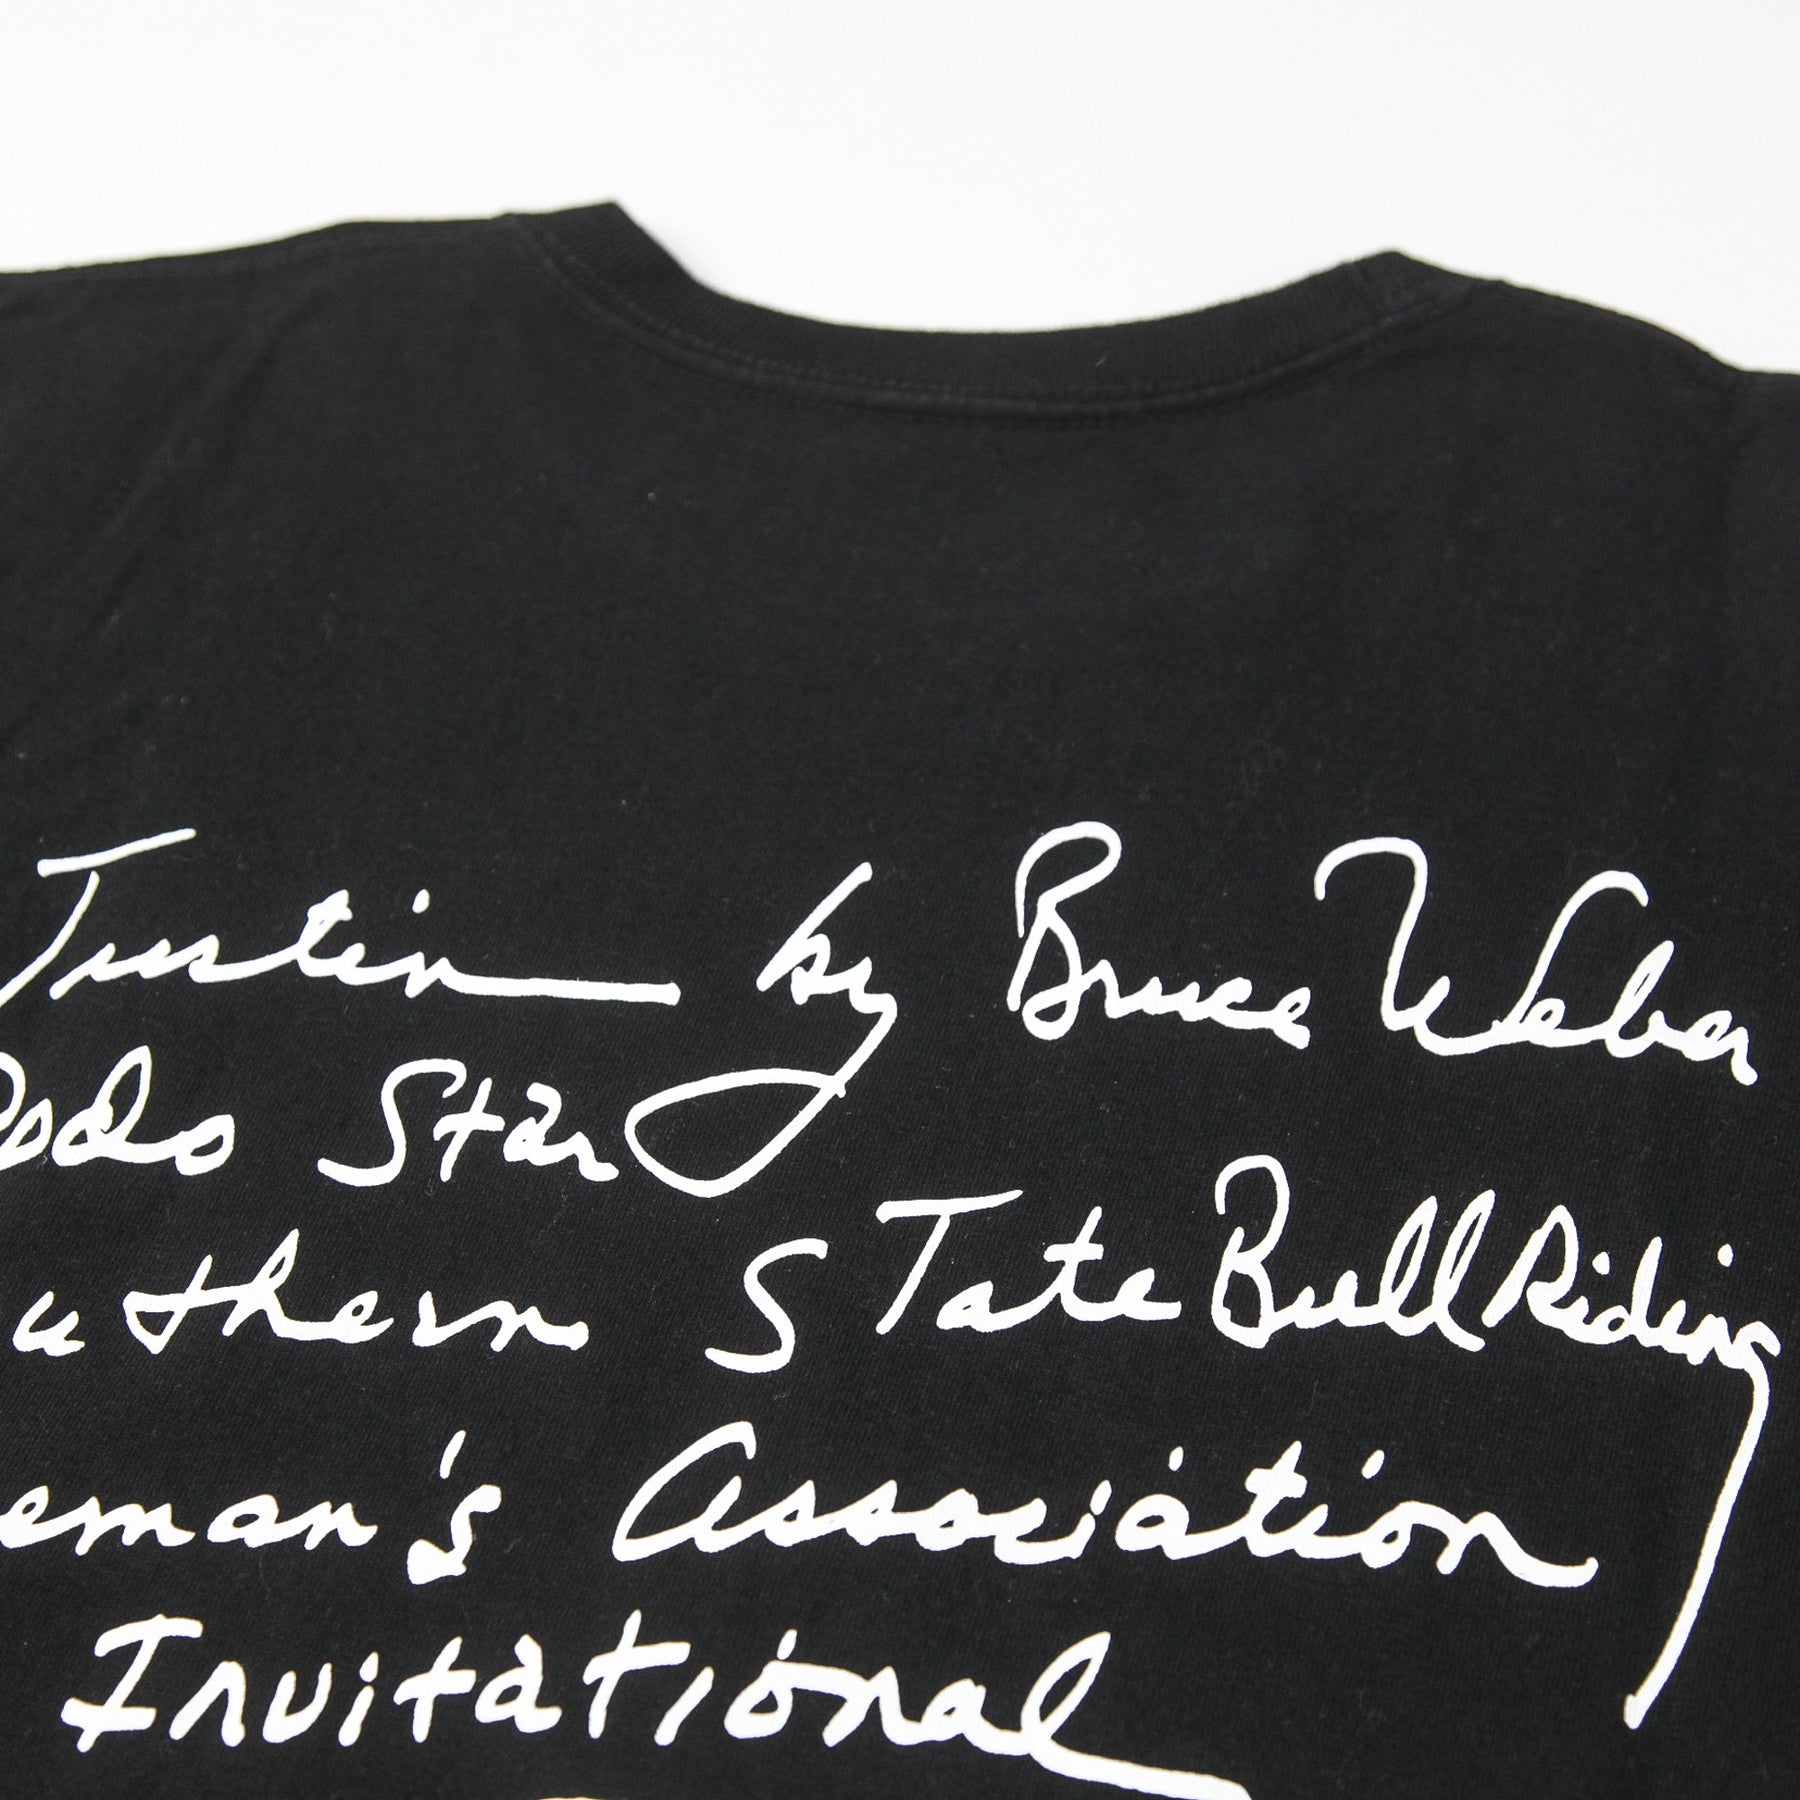 Justin by Bruce Weber
Rodeo Star
uthern State Bull Riding
eman's Association
Invitational